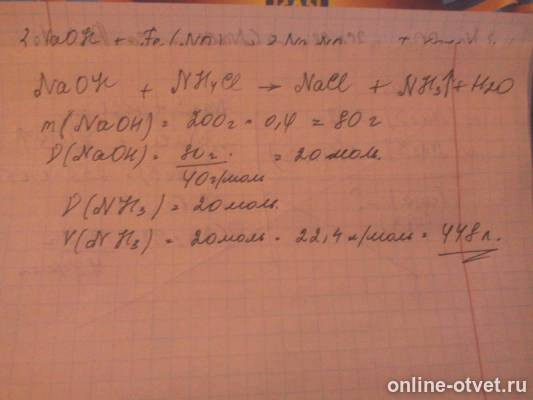 2NaOH + Fe
NaOH + NH4Cl → NaCl + NH3↑ + H2O
m(NaOH) = 200г · 0,4 = 80г
D(NaOH) = 80г. / 40г/моль = 20моль.
D(NH3) = 20моль.
V(NH3) = 20моль · 22,4л/моль = 448л.
online-otvet.ru